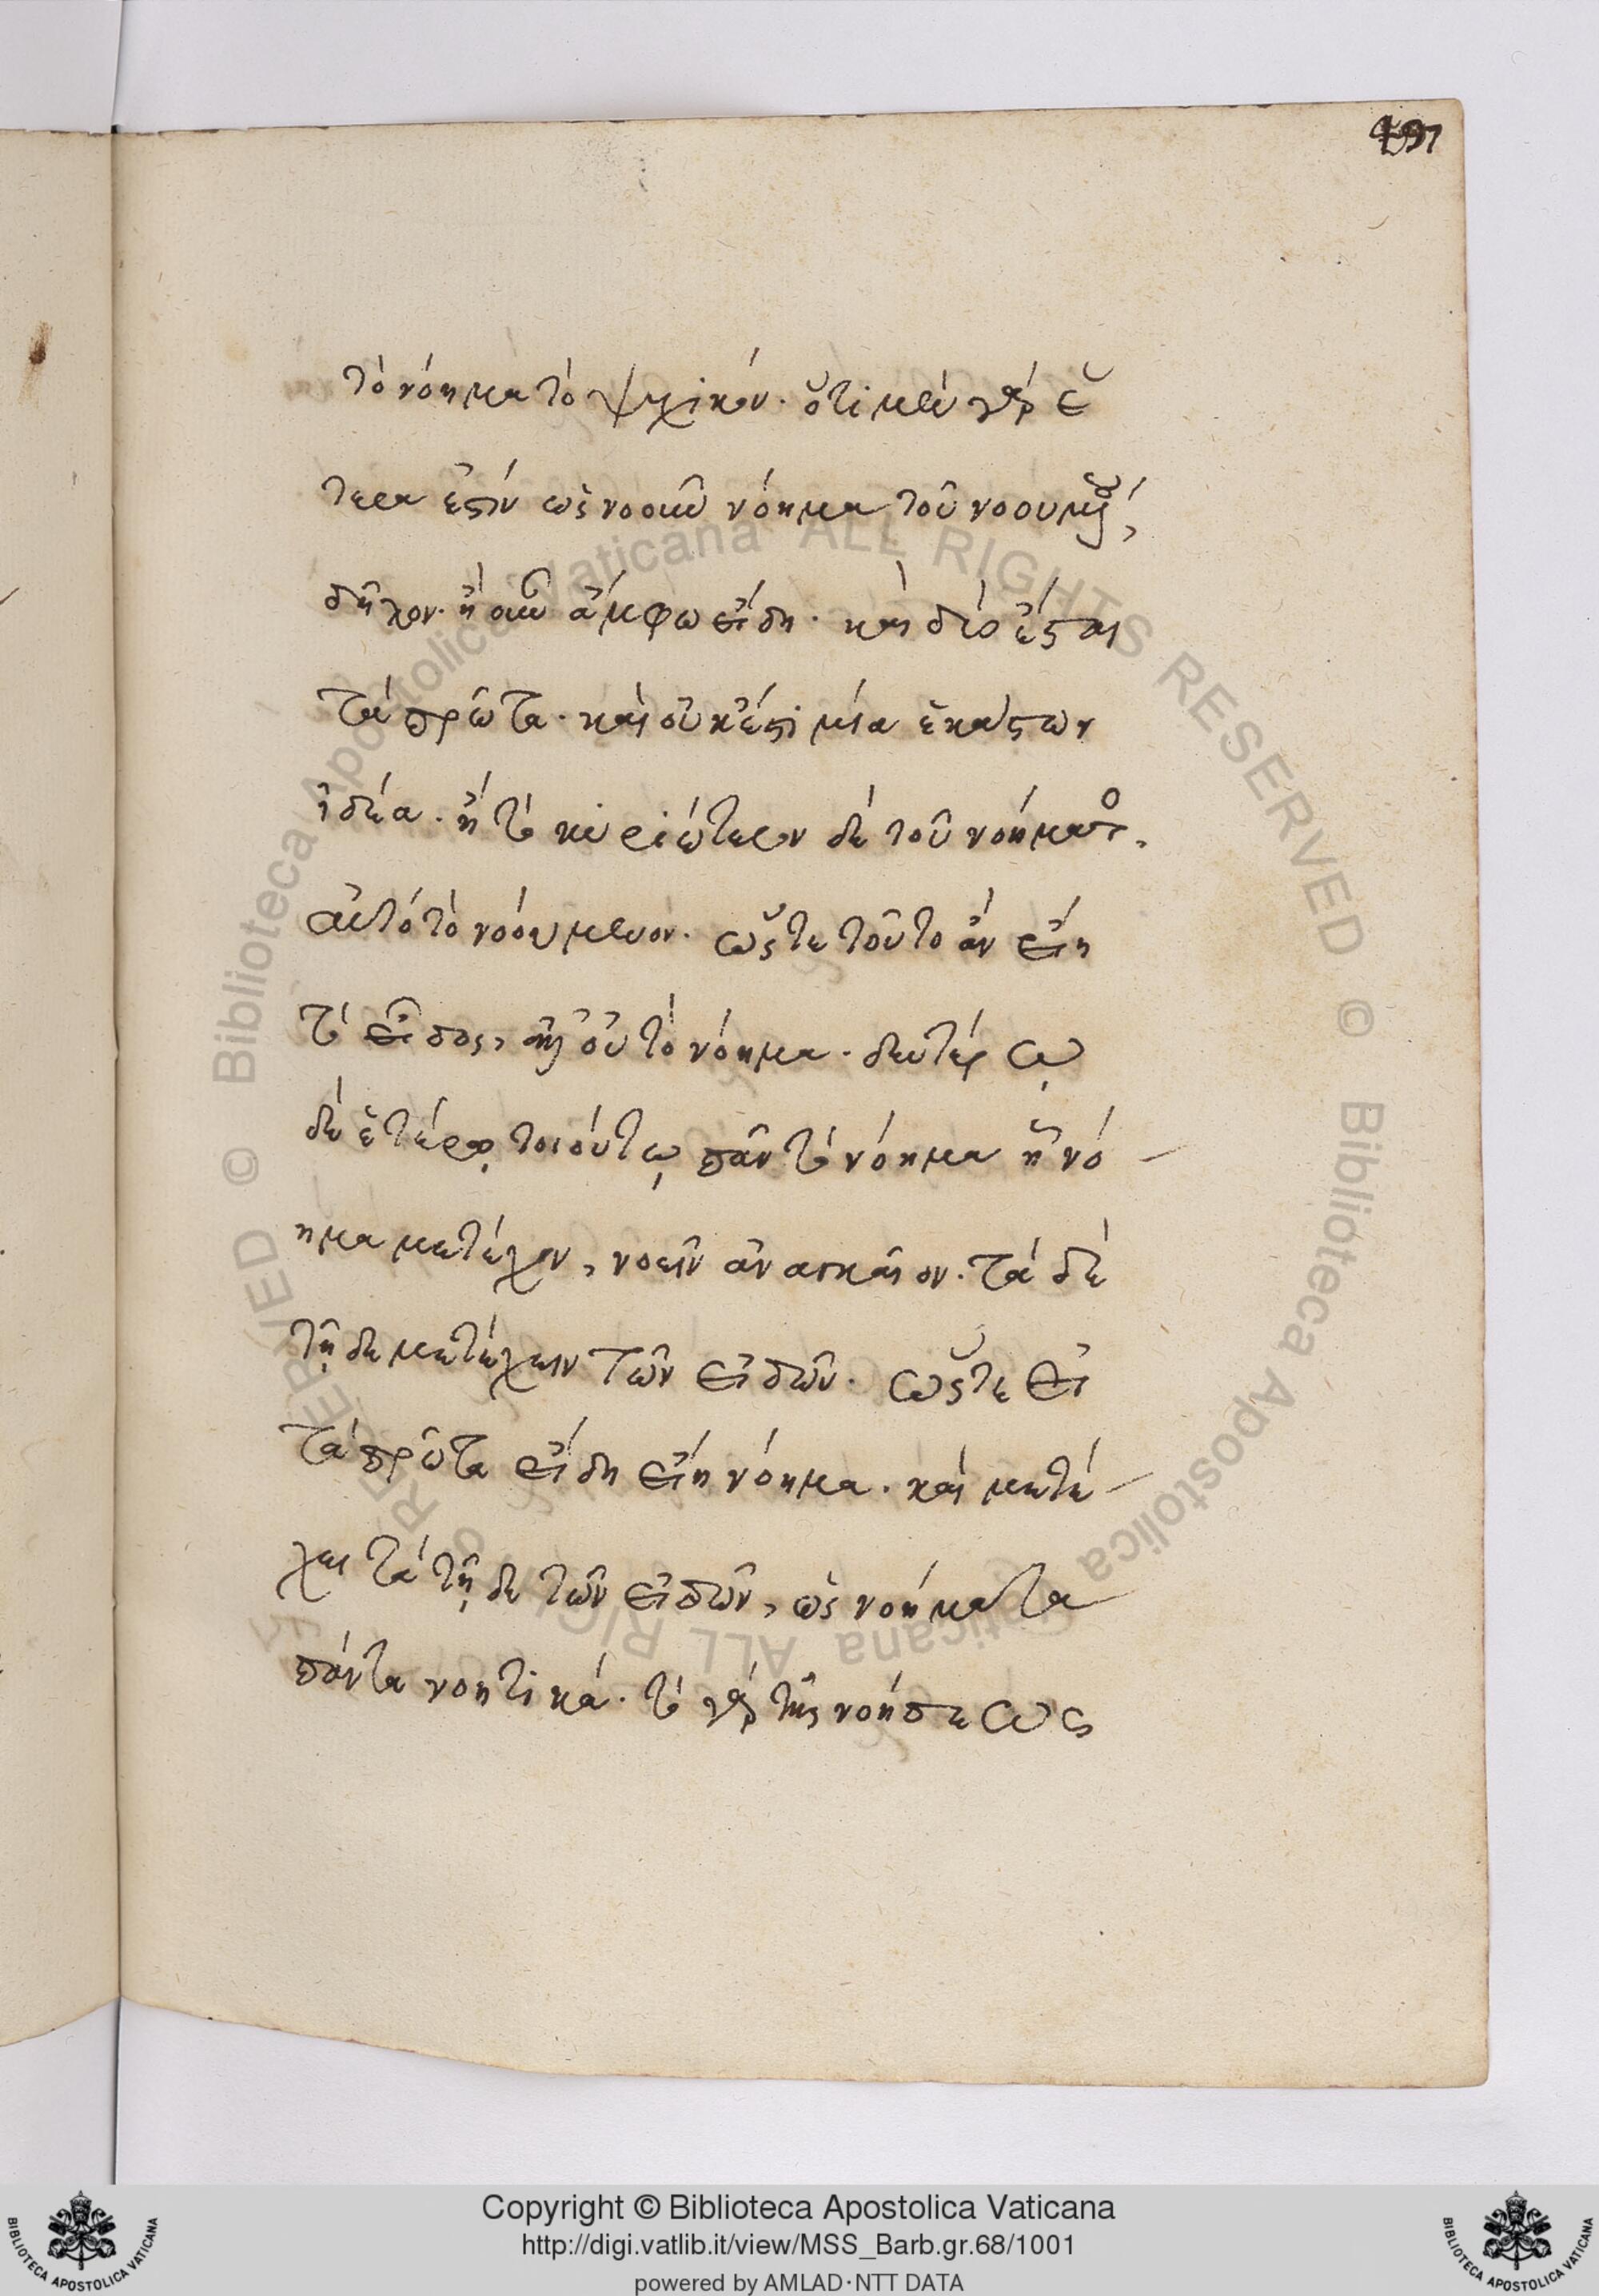 τὸ νόημα τὸ ψυχικόν. ὅτι μὲν γὰρ ἕ
τερα ἐστὶν ὡς νοοῦν νόημα τοῦ νοουμένου,
δῆλον. ἢ οὖν ἄμφω εἴδη. καὶ διὸ ἔσται
τὰ πρῶτα. καὶ οὐκέτι μία ἑκάστων
ἰδέα. ἢ τὸ κυριώτερον δὲ τοῦ νοήματος.
αὐτὸ τὸ νοούμενον. ὥστε τοῦτο ἂν εἴη
τὸ εἶδος, ἀλλ' οὐ τὸ νόημα. δευτέρῳ
δὲ ἑτέρῳ τοιούτῳ πᾶν τὸ νόημα ἢ νό
ημα μετέχον, νοεῖν ἀναγκαῖον. τὰ δὲ
τῇδε μετέχειν τῶν εἰδῶν. ὥστε εἰ
τὰ πρῶτα εἴδη εἴη νόημα. καὶ μετέ
χει τὰ τῇδε τῶν εἰδῶν, ὡς νοήματα
πάντα νοητικά. τὸ γὰρ τῆς νοήσεως
Copyright © Biblioteca Apostolica Vaticana
http://digi.vatlib.it/view/MSS_Barb.gr.68/1001
powered by AMLAD·NTT DATA
BIBLIOTECA APOSTOLICA VATICANA
BIBLIOTECA APOSTOLICA VATICANA
© Biblioteca Apostolica Vaticana ALL RIGHTS RESERVED
© Biblioteca Apostolica Vaticana ALL RIGHTS RESERVED